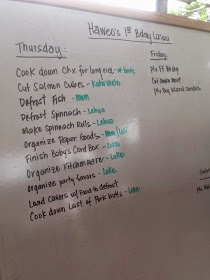 Haweo's 1st Bday Luau
Thursday:
Cook down Chx for long rice - at boots
Cut Salmon Cubes - Kahiwalelo
Defrost Fish - Mom
Defrost Spinach - Lehua
Make Spinach Rolls - Lehua
Organize Paper Goods - Mom/Lei
Finish Baby's Card Box - Loke
Organize Kitchenware - Loke
Organize party favors - Loke
Load Coolers w/ Food to defrost
Cook down Last of Pork butts - Loke
Friday:
PU
Cut down meat
PU Big Island